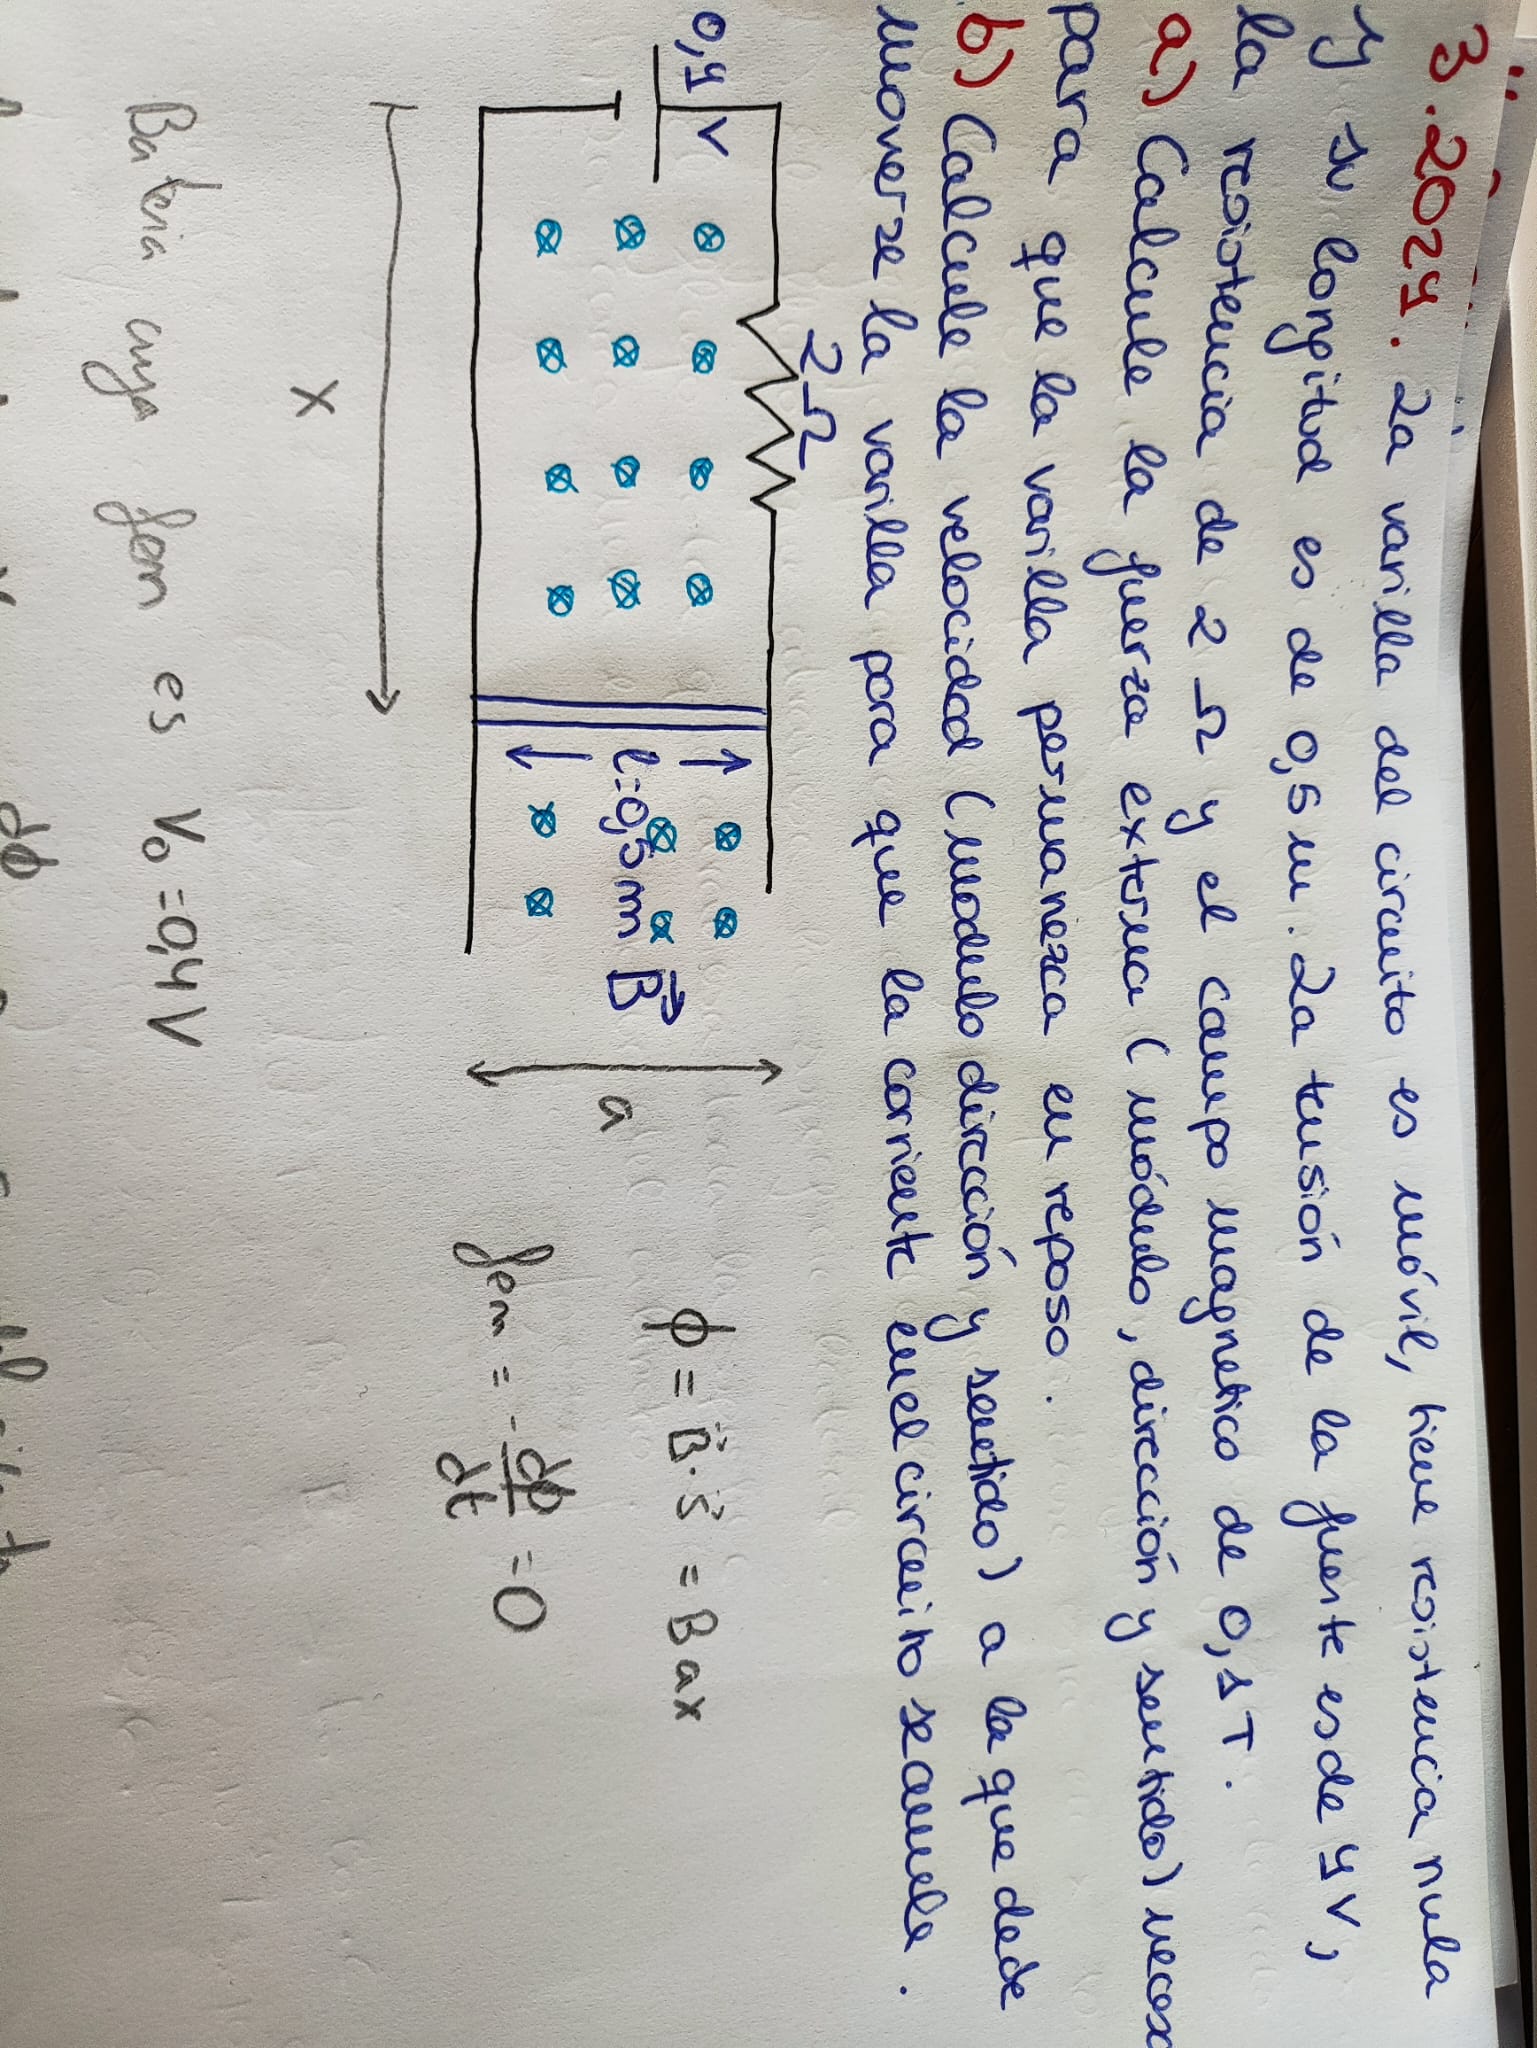 3.2024. La varilla del circuito es móvil, tiene resistencia nula
y su longitud es de 0,5 m. La tensión de la fuente es de 4 V,
la resistencia de 2 Ω y el campo magnetico de 0,1 T.
a) Calcule la fuerza externa (módulo, dirección y sentido) neces
para que la varilla permanezca en reposo.
b) Calcule la velocidad (modulo dirección y sentido) a la que debe
moverse la varilla para que la corriente en el circuito se anule.
2 Ω
0,4 V
l=0,5 m
B⃗
a
x
ϕ = B⃗·S⃗ = B a x
fem = - dϕ/dt = 0
Bateria cuya fem es V₀ = 0,4 V
dϕ